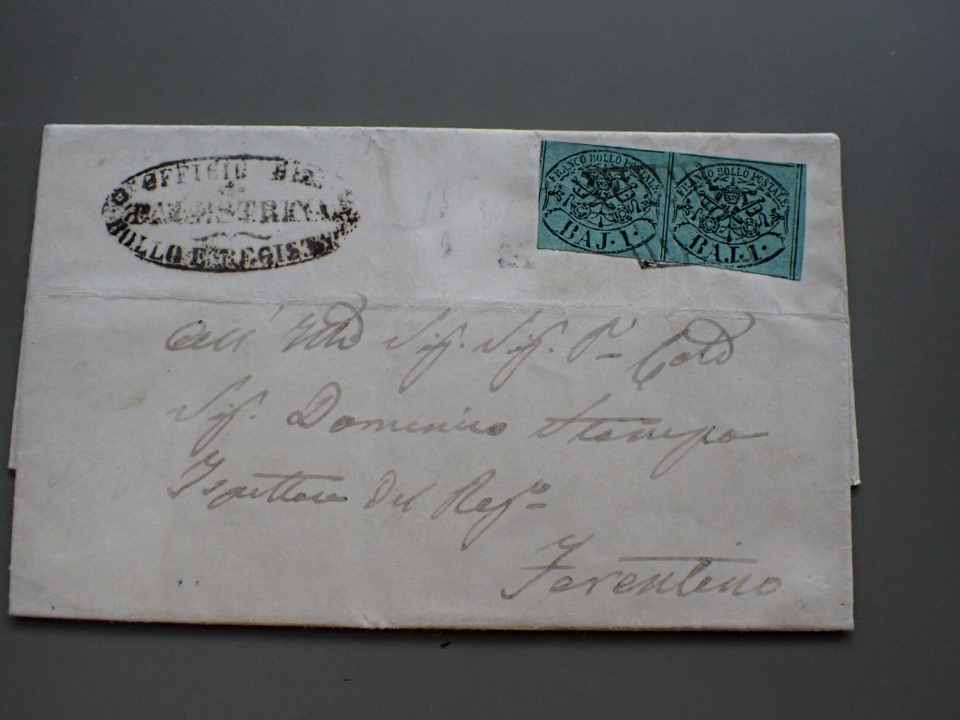 OFFICIO DEL
BOLLO E REGISTRO
FRANCO BOLLO POSTALE
BAJ. 1.
FRANCO BOLLO POSTALE
BAJ. 1.
All' Sig. Sig.
Sig. Domenico Stampa
Ispettore del Reg.o
Ferentino